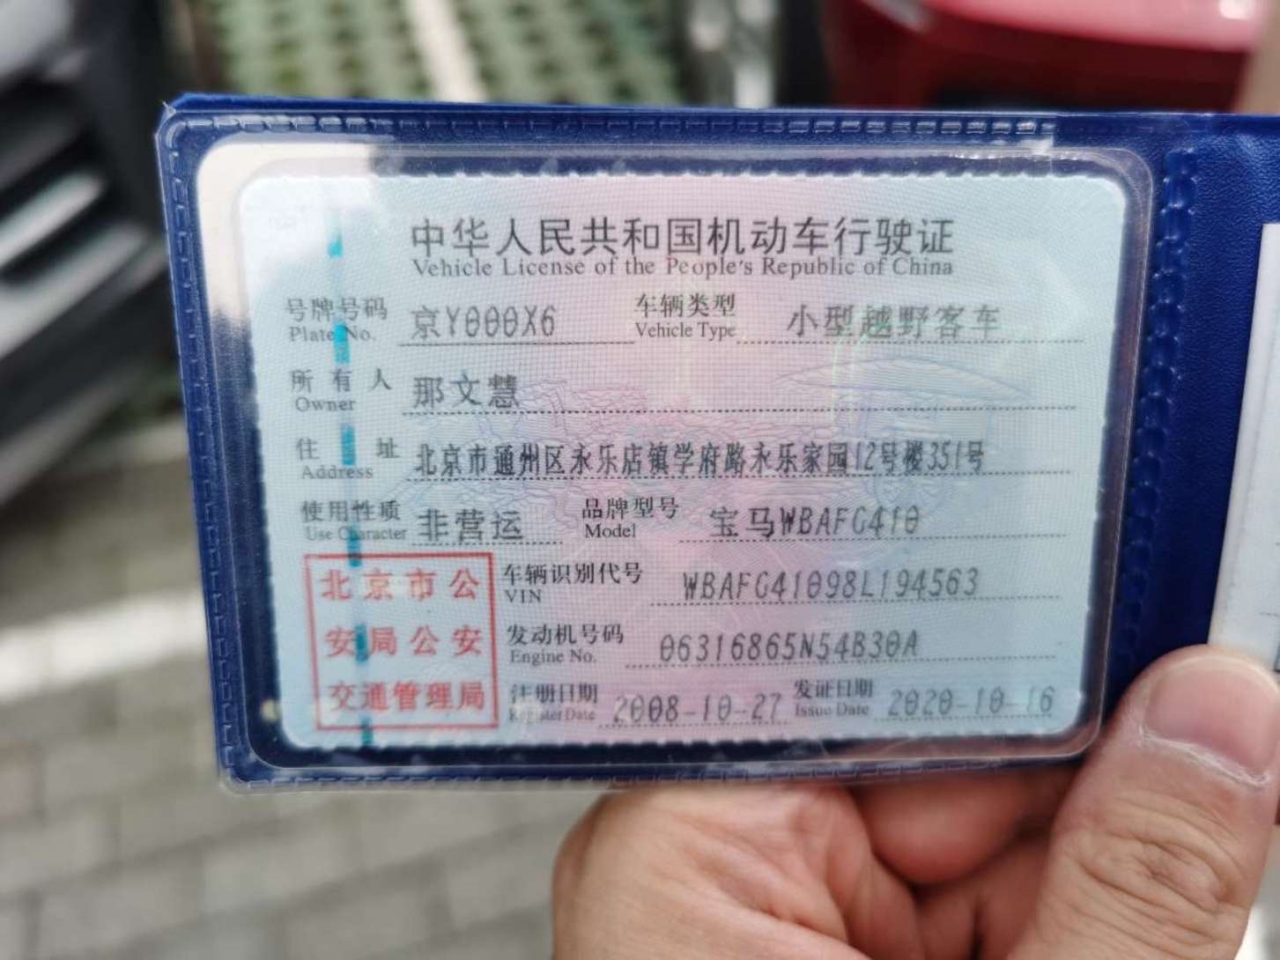 中华人民共和国机动车行驶证
Vehicle License of the People's Republic of China
号牌号码 京Y000X6 车辆类型 小型越野客车
Plate No. Vehicle Type
所有人 那文慧
Owner
住址 北京市通州区永乐店镇学府路永乐家园12号楼351号
Address
使用性质 非营运 品牌型号 宝马WBAFG410
Use Character Model
北京市公
安局公安
交通管理局
车辆识别代号 WBAFG41098L194563
VIN
发动机号码 06316865N54B30A
Engine No.
注册日期 2008-10-27 发证日期 2020-10-16
Register Date Issue Date